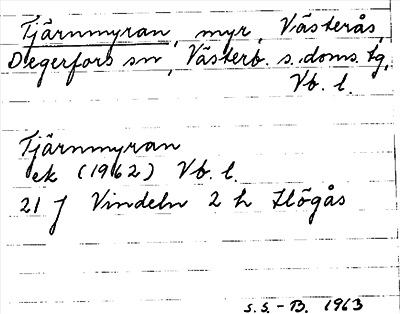 Tjärnmyran, myr, Västerås,
Degerfors sn, Västerb. s. doms. tg,
Vb. l.
Tjärnmyran
ek (1962) Vb. l.
21 J Vindeln 2 h Högås
S.S. - B. 1963